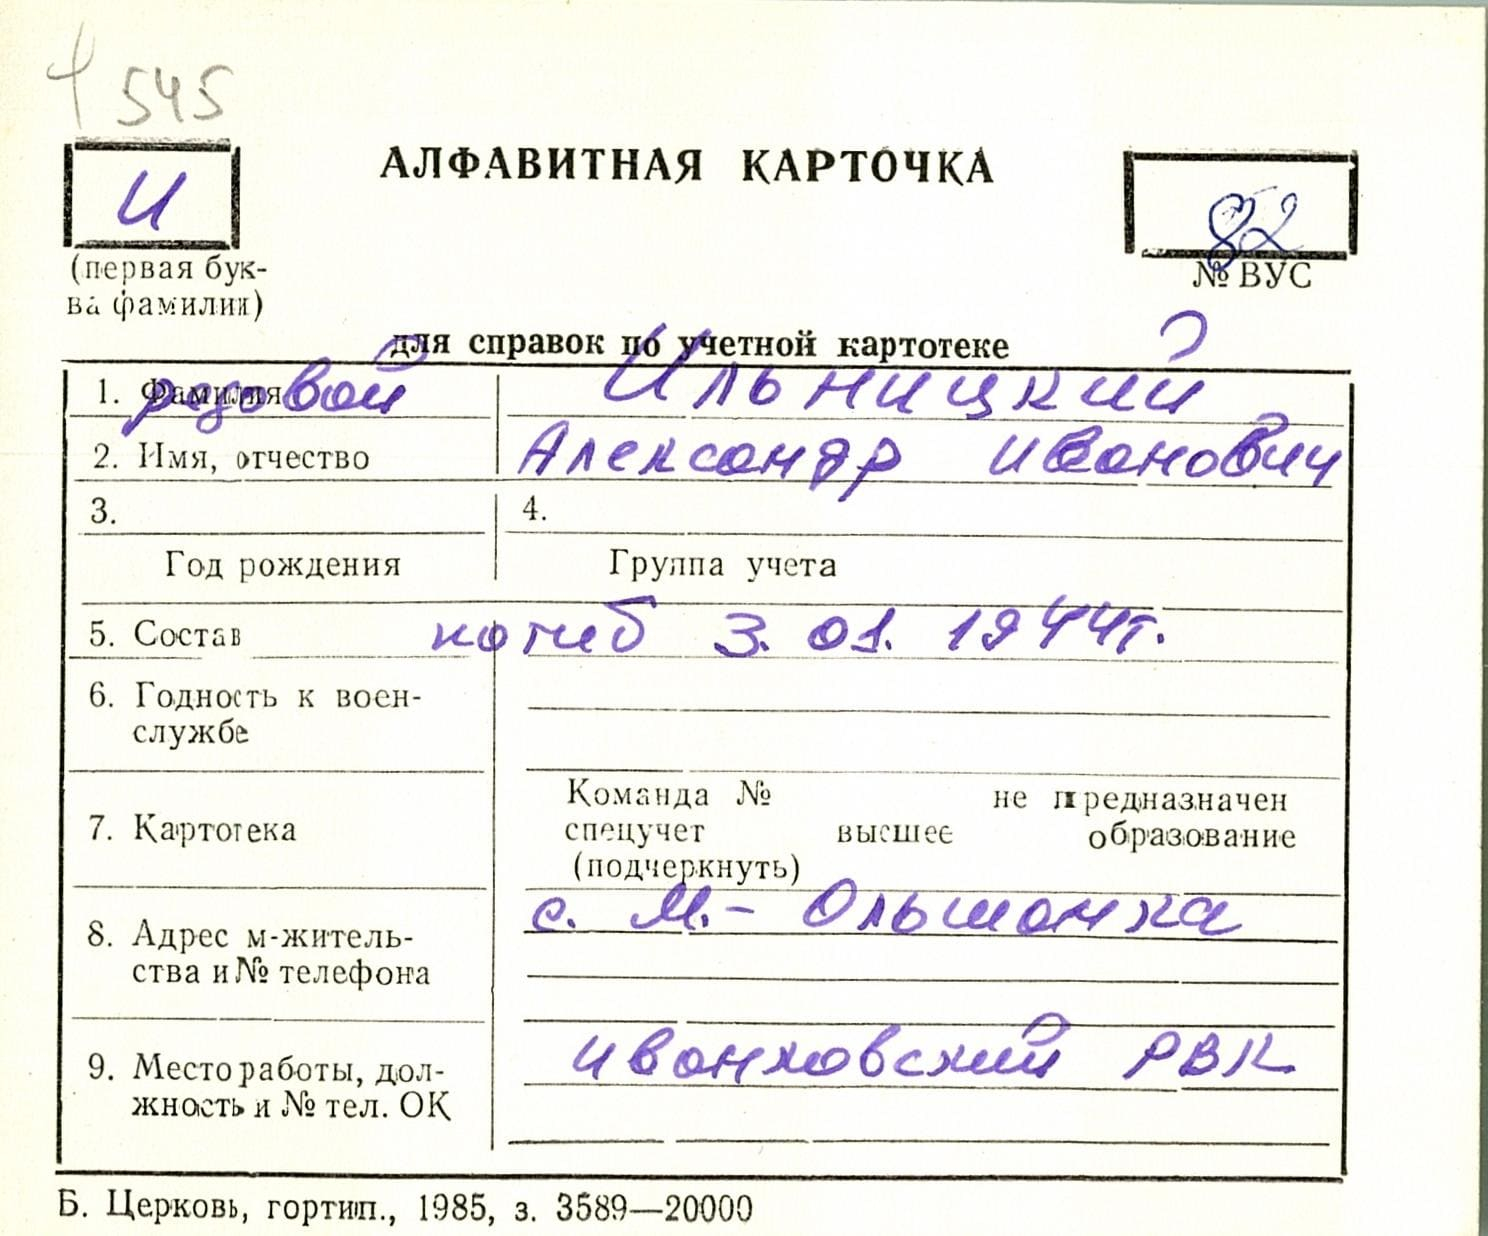 545
И
АЛФАВИТНАЯ КАРТОЧКА
82
(первая бук-
ва фамилии)
№ ВУС
для справок по учетной картотеке
1. Фамилия рядовой Ильницкий
2. Имя, отчество Александр Иванович
3. 4.
Год рождения Группа учета
5. Состав погиб 3.01.1944г.
6. Годность к воен-
службе
Команда № не предназначен
7. Картотека спецучет высшее образование
(подчеркнуть)
с. М.- Ольшанка
8. Адрес м-житель-
ства и № телефона
Иванковский РВК
9. Место работы, дол-
жность и № тел. ОК
Б. Церковь, гортип., 1985, з. 3589—20000